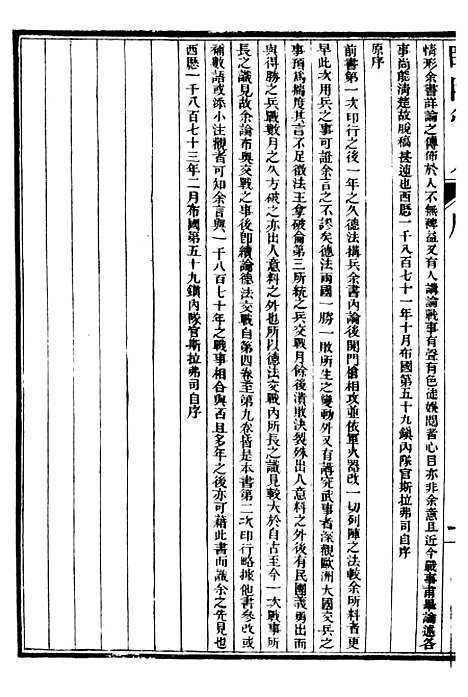 情形余書詳論之傳佈於人不無裨益又有人講論戰事有聲有色徒娛閱者心目亦非余意且近今戰事甫畢論述各
事尚能清楚故脫稿甚速也西歷一千八百七十一年十月布國第五十九鎮內隊官斯拉弗司自序
原序
前書第一次印行之後一年之久德法搆兵余書內論後開門槍相攻並依軍火器改一切列陣之法較余所料者更
早此次用兵之事可證余言之不謬矣德法兩國一勝一敗所生之變動外又有講究武事者深觀歐洲大國交兵之
事預為揣度其言不足徵法王拿破侖第三所統之兵交戰月餘後潰敗決裂殊出人意料之外後有民團義勇出而
與得勝之兵戰數月之久方破之亦出人意料之外也所以德法交戰內所長之識見較大於自古至今一次戰事所
長之識見故余論布與交戰之事後卽續論德法交戰自第四卷至第九卷皆是本書第二次印行略據他書參改或
補數語或添小注觀者可知余言與一千八百七十年之戰事相合與否且多年之後亦可藉此書而識余之先見也
西歷一千八百七十三年二月布國第五十九鎮內隊官斯拉弗司自序